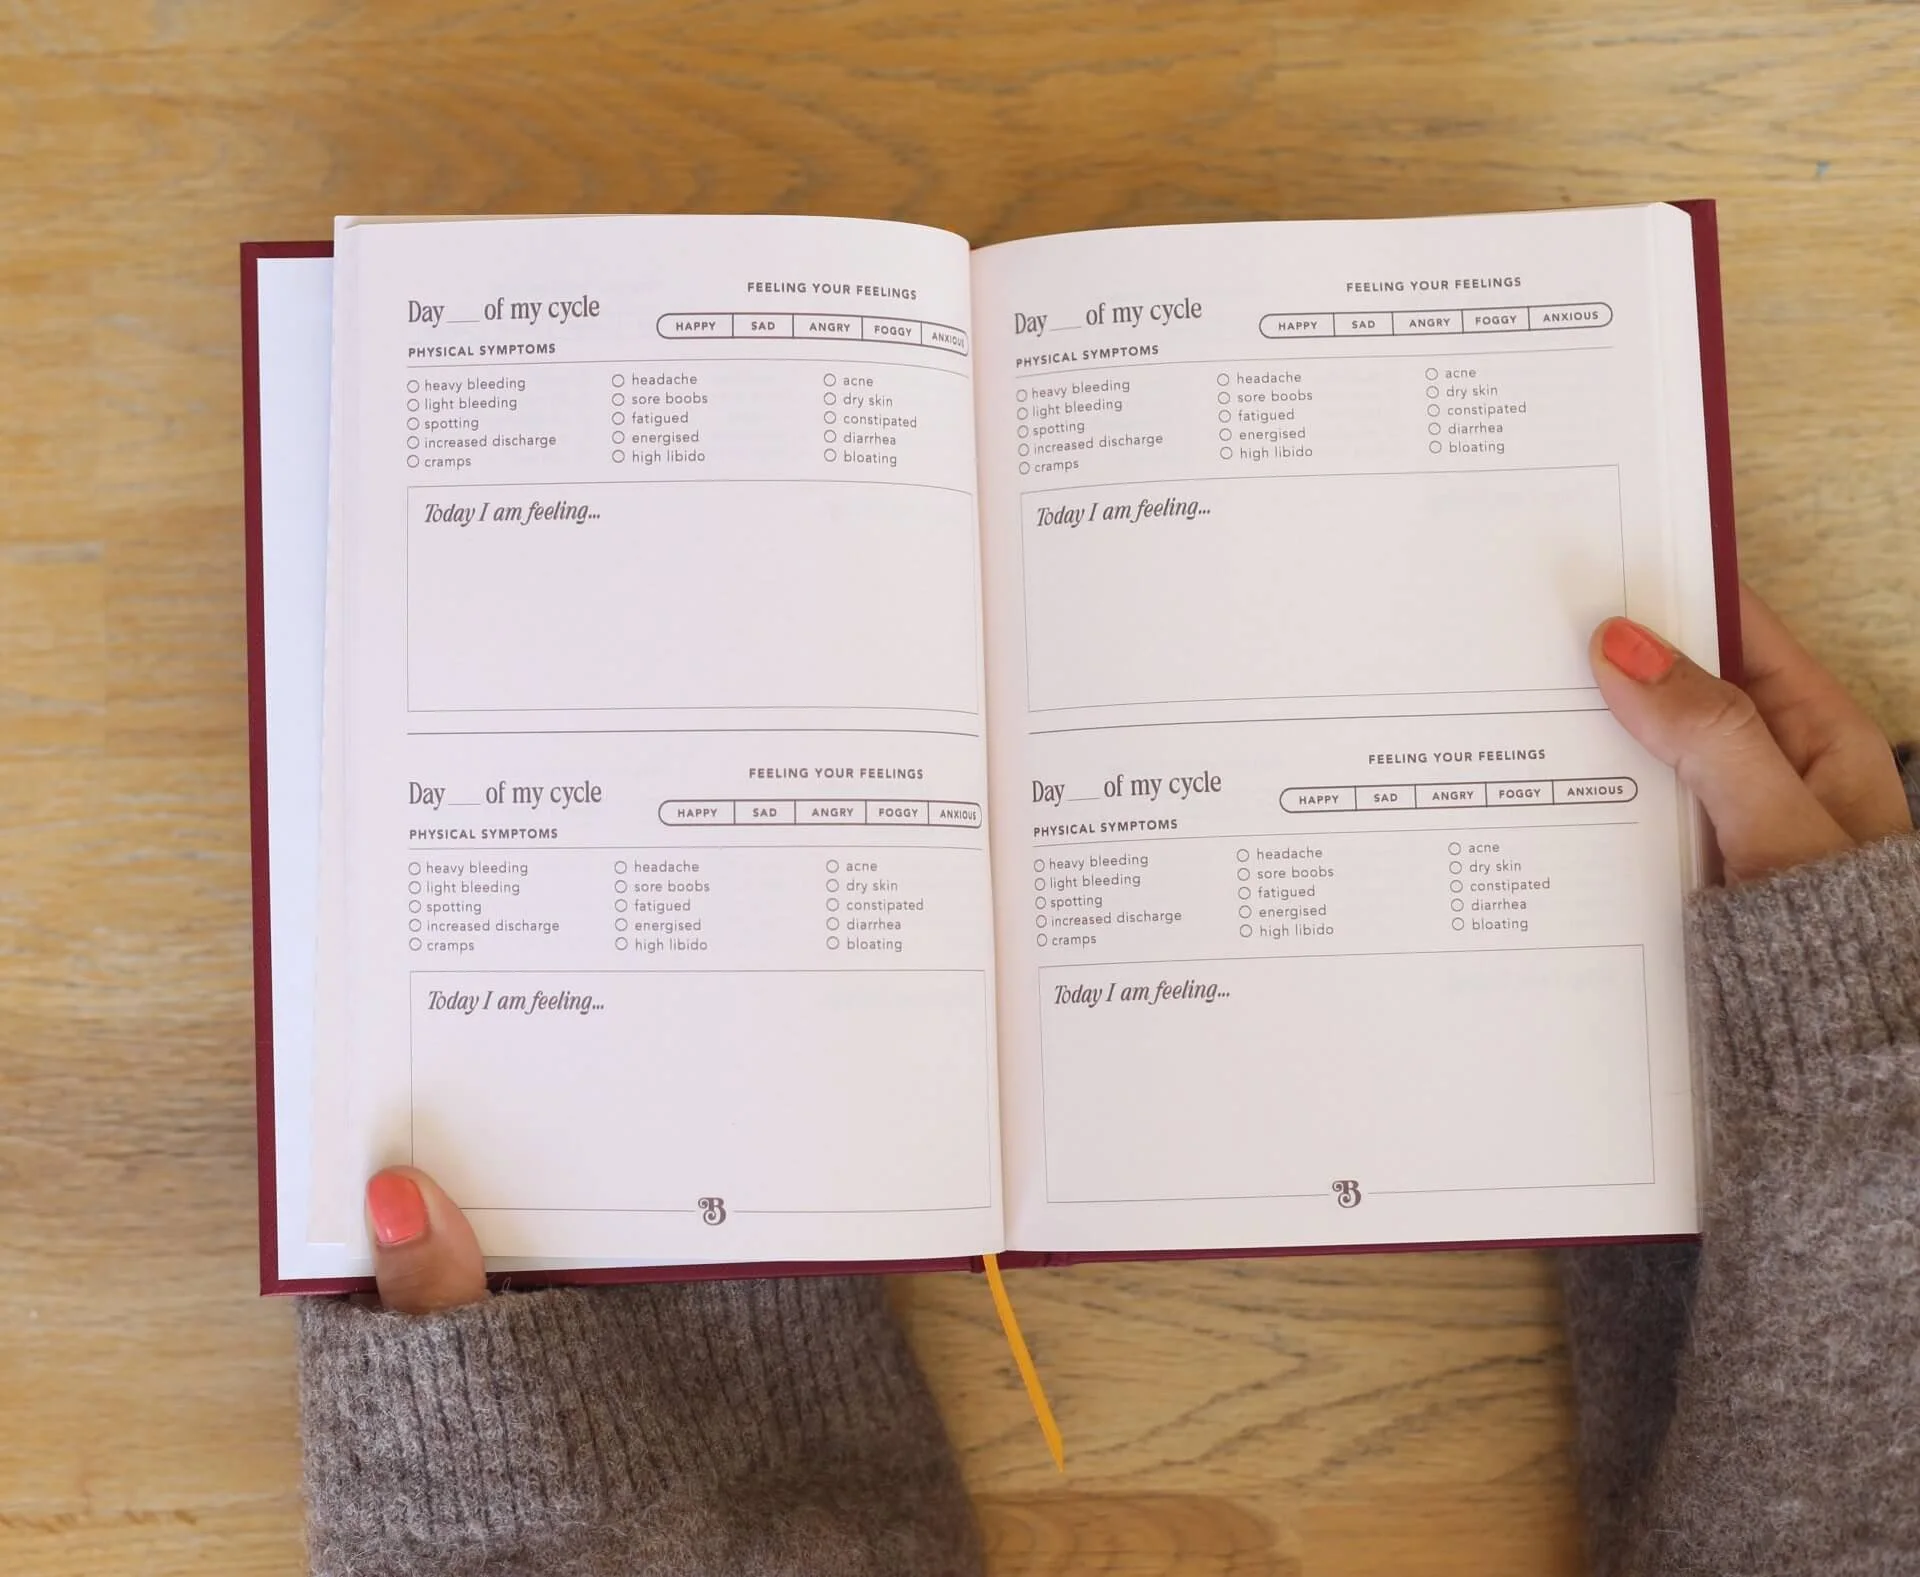 Day___ of my cycle
FEELING YOUR FEELINGS
HAPPY SAD ANGRY FOGGY ANXIOUS
PHYSICAL SYMPTOMS
heavy bleeding
light bleeding
spotting
increased discharge
cramps
headache
sore boobs
fatigued
energised
high libido
acne
dry skin
constipated
diarrhea
bloating
Today I am feeling...
Day___ of my cycle
FEELING YOUR FEELINGS
HAPPY SAD ANGRY FOGGY ANXIOUS
PHYSICAL SYMPTOMS
heavy bleeding
light bleeding
spotting
increased discharge
cramps
headache
sore boobs
fatigued
energised
high libido
acne
dry skin
constipated
diarrhea
bloating
Today I am feeling...
B
Day___ of my cycle
FEELING YOUR FEELINGS
HAPPY SAD ANGRY FOGGY ANXIOUS
PHYSICAL SYMPTOMS
heavy bleeding
light bleeding
spotting
increased discharge
cramps
headache
sore boobs
fatigued
energised
high libido
acne
dry skin
constipated
diarrhea
bloating
Today I am feeling...
Day___ of my cycle
FEELING YOUR FEELINGS
HAPPY SAD ANGRY FOGGY ANXIOUS
PHYSICAL SYMPTOMS
heavy bleeding
light bleeding
spotting
increased discharge
cramps
headache
sore boobs
fatigued
energised
high libido
acne
dry skin
constipated
diarrhea
bloating
Today I am feeling...
B